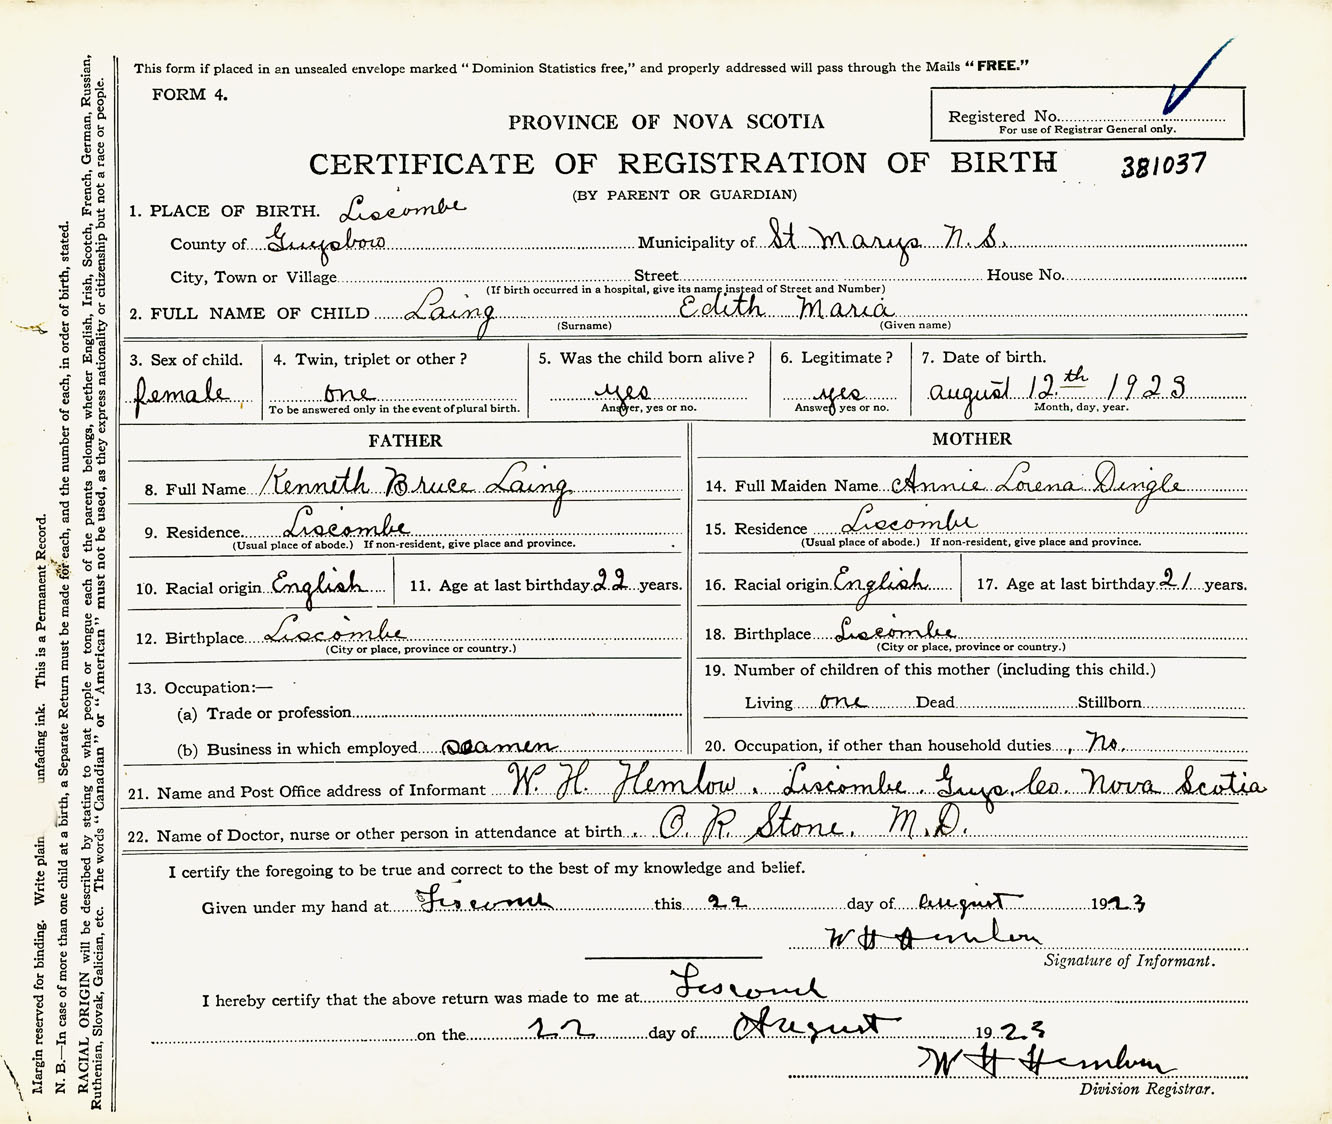 This form if placed in an unsealed envelope marked "Dominion Statistics free," and properly addressed will pass through the Mails "FREE."
FORM 4.
Registered No.
For use of Registrar General only.
PROVINCE OF NOVA SCOTIA
CERTIFICATE OF REGISTRATION OF BIRTH 381037
(BY PARENT OR GUARDIAN)
1. PLACE OF BIRTH. Liscombe
County of Guysboro Municipality of St Marys N. S.
City, Town or Village Street House No.
(If birth occurred in a hospital, give its name instead of Street and Number)
2. FULL NAME OF CHILD Laing Edith Maria
(Surname) (Given name)
3. Sex of child. 4. Twin, triplet or other? 5. Was the child born alive? 6. Legitimate? 7. Date of birth.
female one yes yes august 12th 1923
To be answered only in the event of plural birth. Answer, yes or no. Answer yes or no. Month, day, year.
FATHER MOTHER
8. Full Name Kenneth Bruce Laing 14. Full Maiden Name Annie Lorena Dingle
9. Residence Liscombe 15. Residence Liscombe
(Usual place of abode.) If non-resident, give place and province. (Usual place of abode.) If non-resident, give place and province.
10. Racial origin English 11. Age at last birthday 22 years. 16. Racial origin English 17. Age at last birthday 21 years.
12. Birthplace Liscombe 18. Birthplace Liscombe
(City or place, province or country.) (City or place, province or country.)
19. Number of children of this mother (including this child.)
13. Occupation:—
Living one Dead Stillborn
(a) Trade or profession
(b) Business in which employed seamen 20. Occupation, if other than household duties No.
21. Name and Post Office address of Informant W. H. Hemlow. Liscombe. Guys. Co. Nova Scotia
22. Name of Doctor, nurse or other person in attendance at birth C. R Stone. M.D.
I certify the foregoing to be true and correct to the best of my knowledge and belief.
Given under my hand at Liscomb this 22 day of August 1923
W H Hemlow
Signature of Informant.
I hereby certify that the above return was made to me at Liscomb
on the 22 day of August 1923
W H Hemlow
Division Registrar.
Margin reserved for binding. Write plain unfading ink. This is a Permanent Record.
N. B.—In case of more than one child at a birth, a Separate Return must be made for each, and the number of each, in order of birth, stated.
RACIAL ORIGIN will be described by stating to what people or tongue each of the parents belongs, whether English, Irish, Scotch, French, German, Russian,
Ruthenian, Slovak, Galician, etc. The words "Canadian" or "American" must not be used, as they express nationality or citizenship but not a race or people.